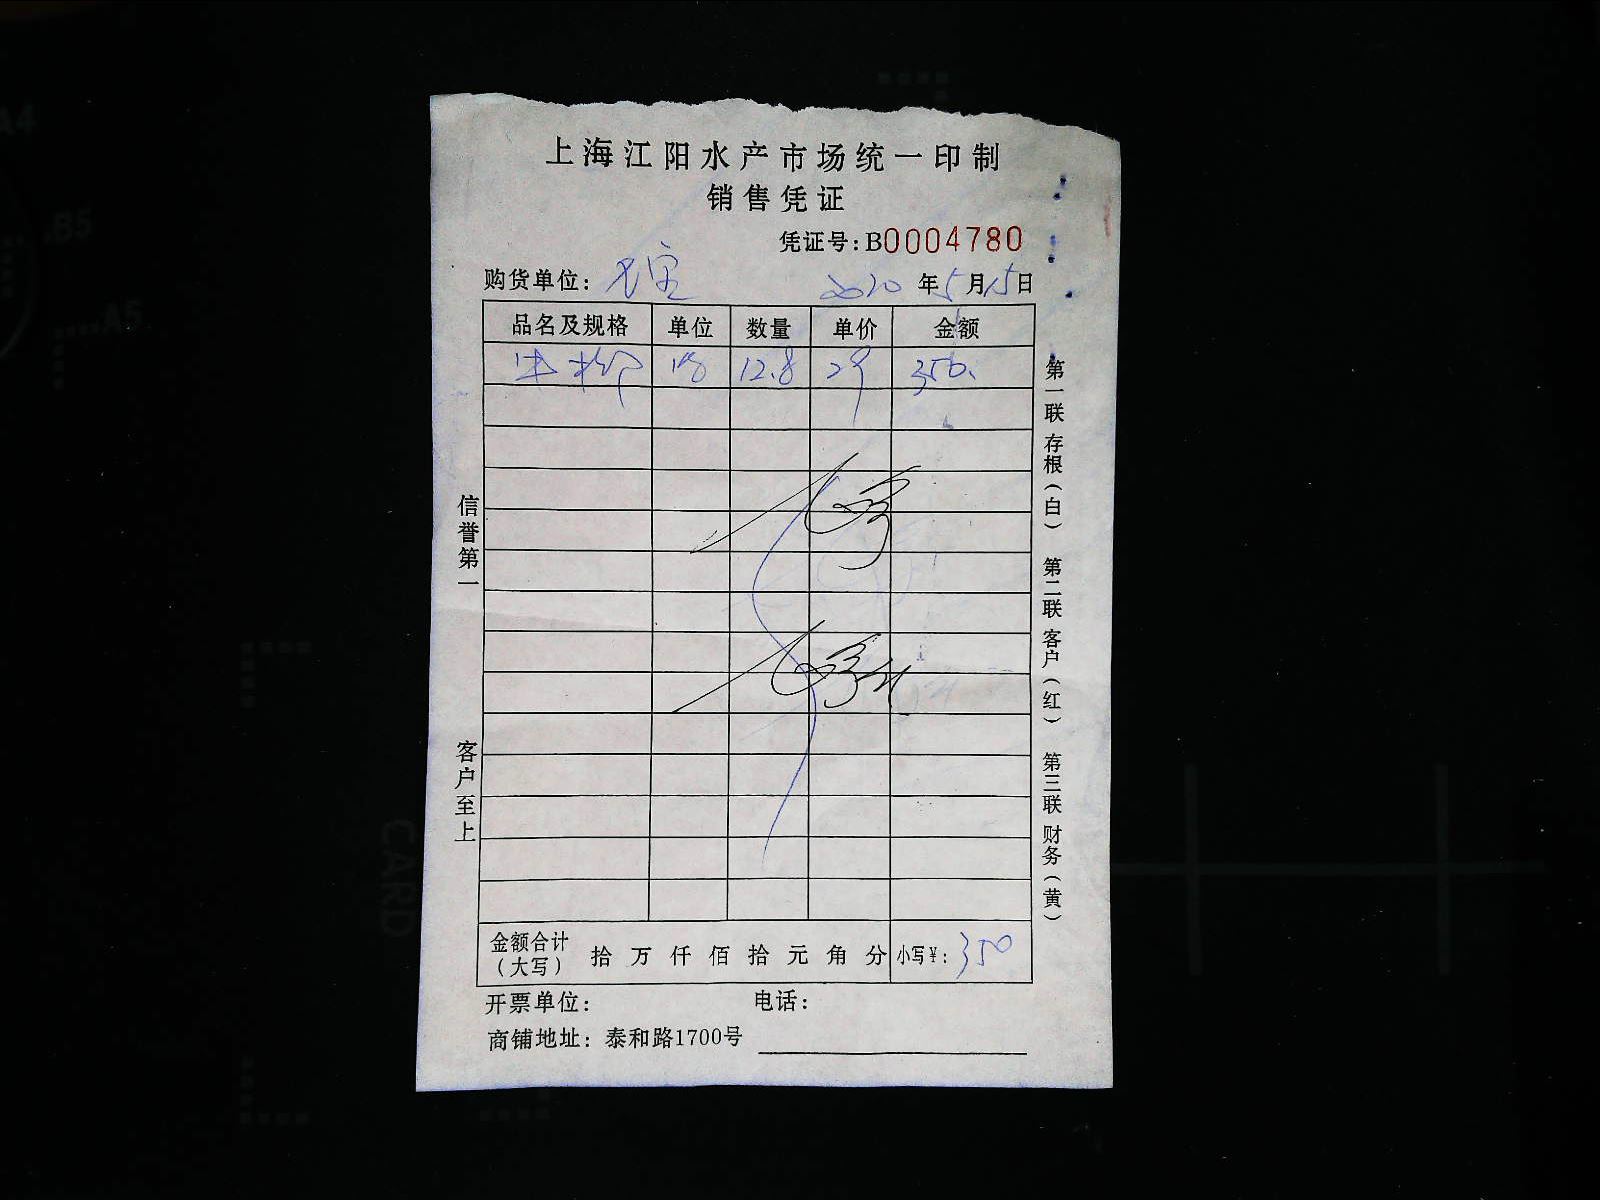 上海江阳水产市场统一印制
销售凭证
凭证号:B0004780
购货单位: 2020年5月15日
品名及规格 单位 数量 单价 金额
12.8 29 350.
信誉第一
客户至上
第一联 存根(白) 第二联 客户(红) 第三联 财务(黄)
金额合计(大写) 拾 万 仟 佰 拾 元 角 分 小写¥:350
开票单位: 电话:
商铺地址: 泰和路1700号
A4
B5
A5
CARD